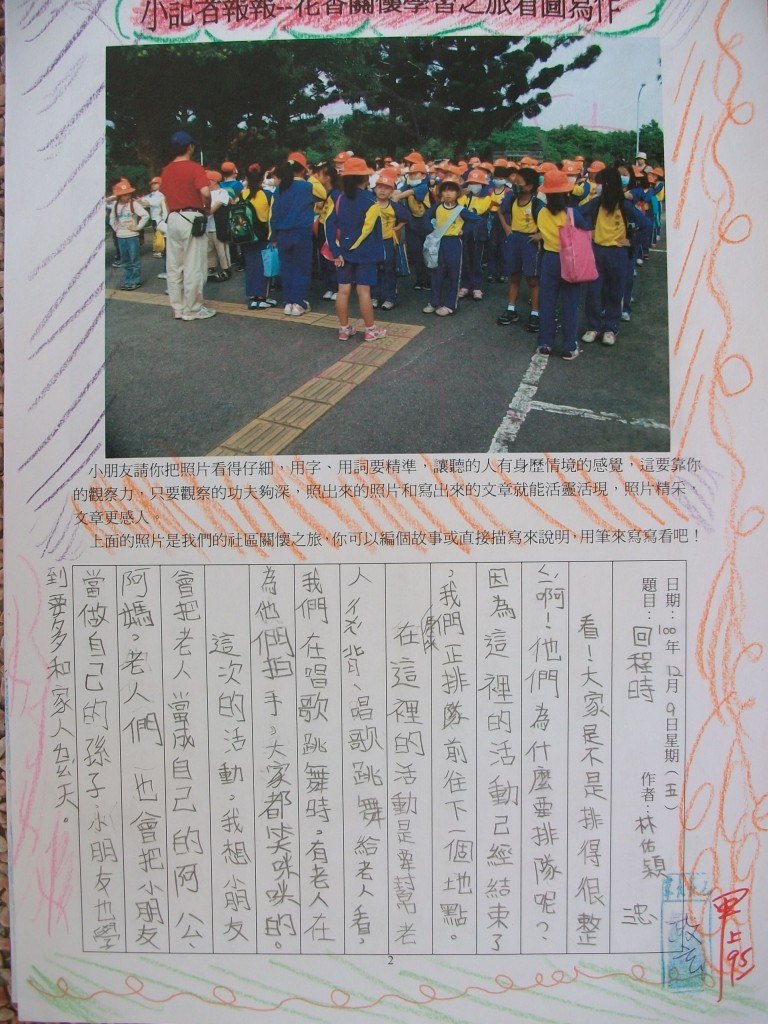 小記者報報--花香關懷學習之旅看圖寫作
小朋友請你把照片看得仔細，用字、用詞要精準，讓聽的人有身歷情境的感覺，這要靠你
的觀察力，只要觀察的功夫夠深，照出來的照片和寫出來的文章就能活靈活現，照片精采，
文章更感人。
上面的照片是我們的社區關懷之旅，你可以編個故事或直接描寫來說明，用筆來寫寫看吧！
日期：100年12月9日星期（五）
題目：回程時 作者：林佑穎
看！大家是不是排得很整
ㄑㄧ啊！他們為什麼要排隊呢？
因為這裡的活動已經結束了
，我們正排隊前往下一個地點。
在這裡的活動是要幫老
人ㄔㄨㄟˊ背、唱歌跳舞給老人看，
我們在唱歌跳舞時，有老人在
為他們拍手，大家都笑咪咪的。
這次的活動，我想小朋友
會把老人當成自己的阿公、
阿媽，老人們也會把小朋友
當做自己的孫子，小朋友也學
到要多和家人ㄌㄧㄠˊ天。
甲上95
2